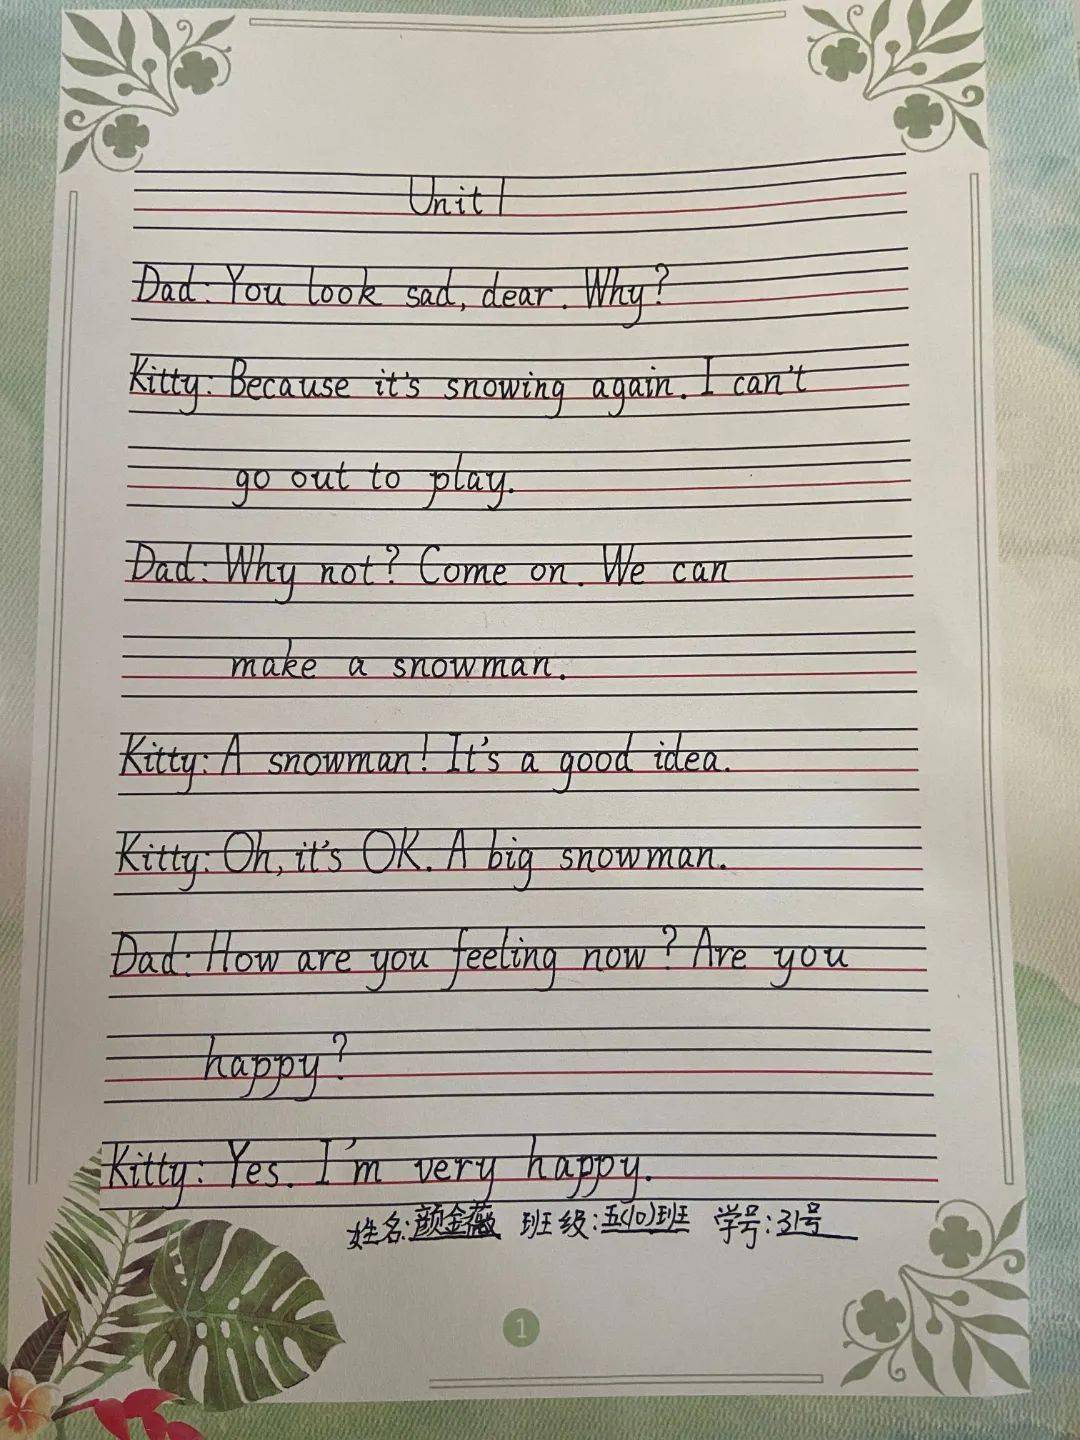 Unit 1
Dad: You look sad, dear. Why?
Kitty: Because it's snowing again. I can't
go out to play.
Dad: Why not? Come on. We can
make a snowman.
Kitty: A snowman! It's a good idea.
Kitty: Oh, it's OK. A big snowman.
Dad: How are you feeling now? Are you
happy?
Kitty: Yes. I'm very happy.
姓名:颜金薇 班级:五(10)班 学号:31号
1